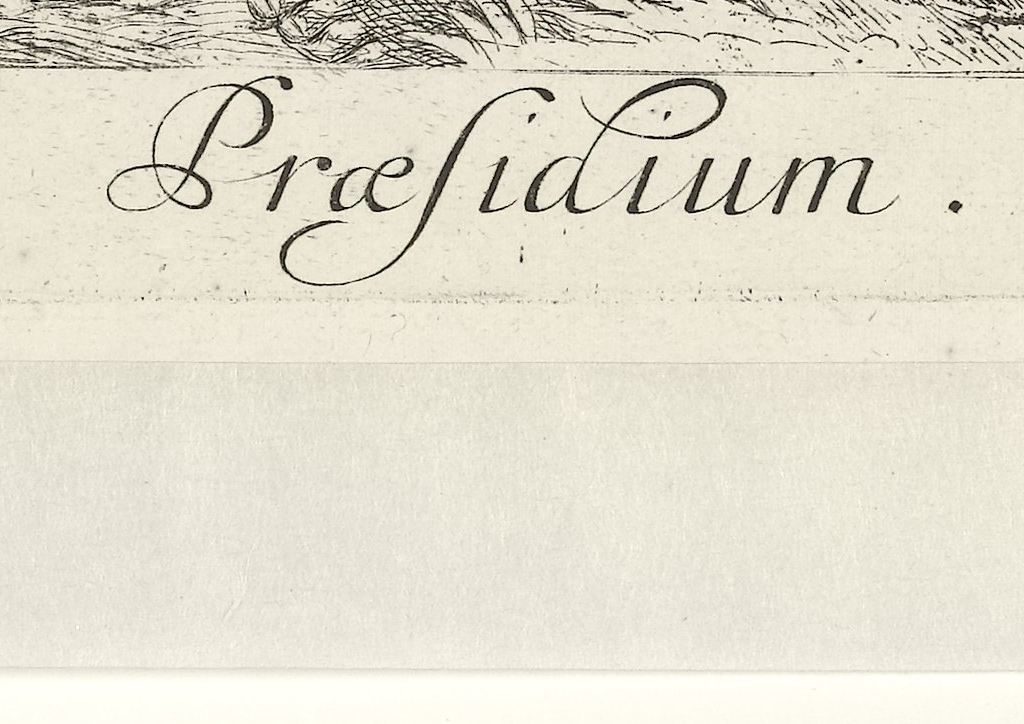 Præſidium .